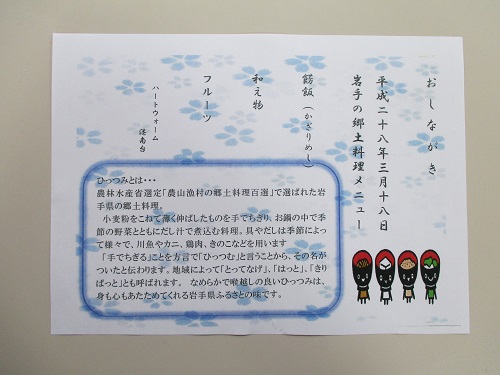 おしながき
平成二十八年三月十八日
岩手の郷土料理メニュー
餝飯（かざりめし）
和え物
フルーツ
ハートウォーム
港南台
ひっつみとは・・・
農林水産省選定「農山漁村の郷土料理百選」で選ばれた岩
手県の郷土料理。
小麦粉をこねて薄く伸ばしたものを手でちぎり、お鍋の中で季
節の野菜とともにだし汁で煮込む料理。具やだしは季節によっ
て様々で、川魚やカニ、鶏肉、きのこなどを用います
「手でちぎる」ことを方言で「ひっつむ」と言うことから、その名が
ついたと伝わります。地域によって「とってなげ」、「はっと」、「きり
ばっと」とも呼ばれます。 なめらかで喉越しの良いひっつみは、
身も心もあたためてくれる岩手県ふるさとの味です。